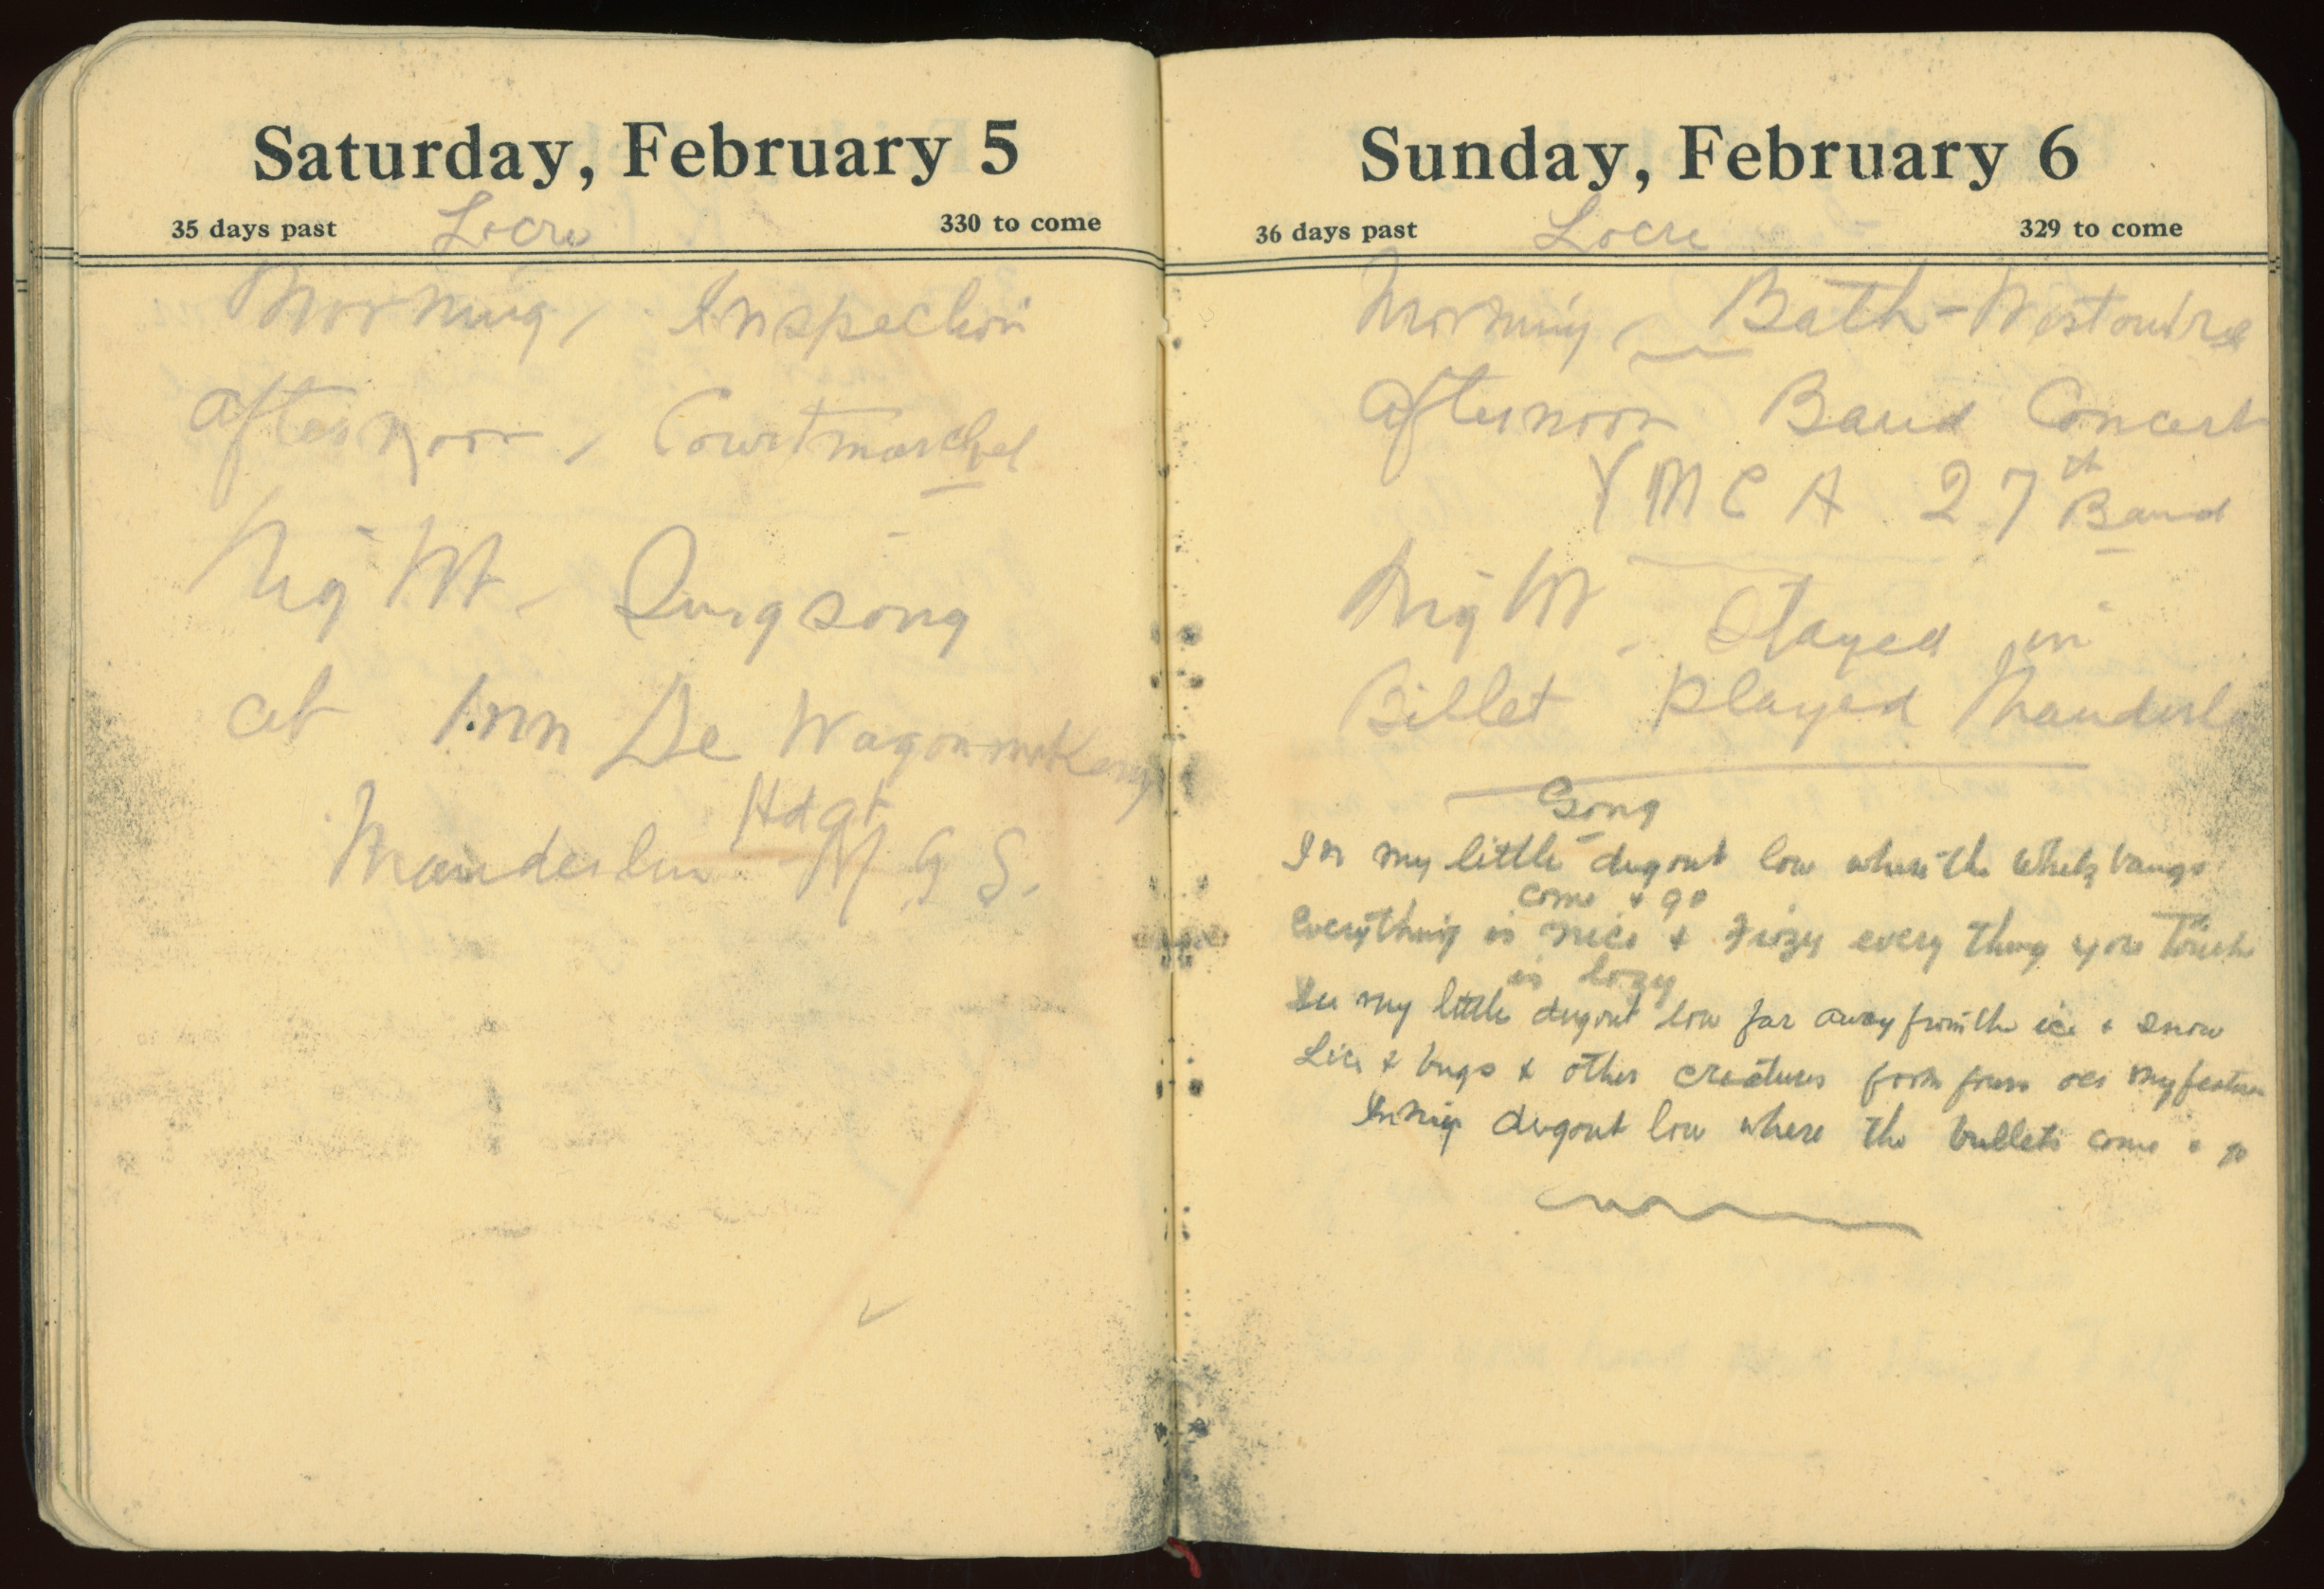 Saturday, February 5
35 days past Locre 330 to come
Morning, Inspection
afternoon, Courtmarchel
Night - Singsong
at Inn De Wagonmakers
Hdqt
Manderlin M G S.
Sunday, February 6
36 days past Locre 329 to come
Morning, Bath - Westoutre
afternoon Band Concert
Y M C A 27th Band
Night. Stayed in
Billet Played Manderl
Song
In my little dugout low where the Whizbangs
come & go
Everything is nice & Frozy every thing you touch
is lozy
In my little dugout low far away from the ice & snow
Lice & bugs & other creatures form fours oer my features
In my dugout low where the bullets come & go